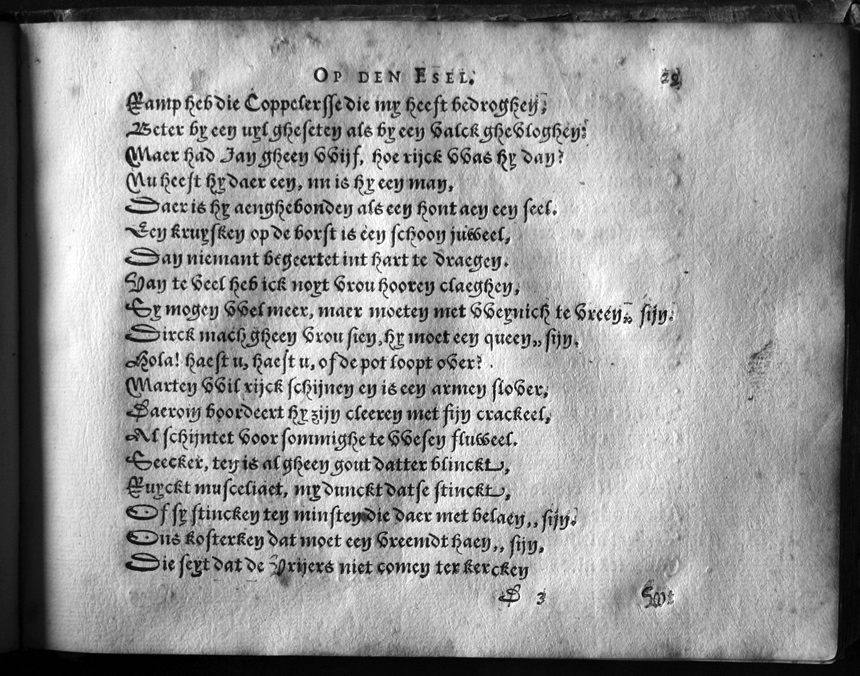 OP DEN ESEL. 29
Ramp heb die Coppelersse die my heeft bedroghen,
Beter by een uyl gheseten als by een valck ghevloghen:
Maer had Jan gheen VVijf, hoe rijck VVas hy dan?
Nu heeft hy daer een, nu is hy een man,
Daer is hy aenghebonden als een hont aen een seel.
Een kruysken op de borst is een schoon juweel,
Dan niemant begeertet int hart te draegen.
Van te veel heb ick noyt vrou hooren claeghen,
Sy mogen VVel meer, maer moeten met VVeynich te vreen,, sijn.
Dirck mach gheen vrou sien, hy moet een queen,, sijn.
Hola! haest u, haest u, of de pot loopt over?
Marten VVil rijck schijnen en is een armen slover,
Daerom boordeert hy zijn cleeren met sijn crackeel,
Al schijntet voor sommighe te VVesen fluweel.
Seecker, ten is al gheen gout datter blinckt,
Ruyckt musceliaet, my dunckt datse stinckt,
Of sy stincken ten minsten die daer met belaen,, sijn.
Ons kosterken dat moet een vreemdt haen,, sijn,
Die seyt dat de Vrijers niet comen ter kercken
D 3